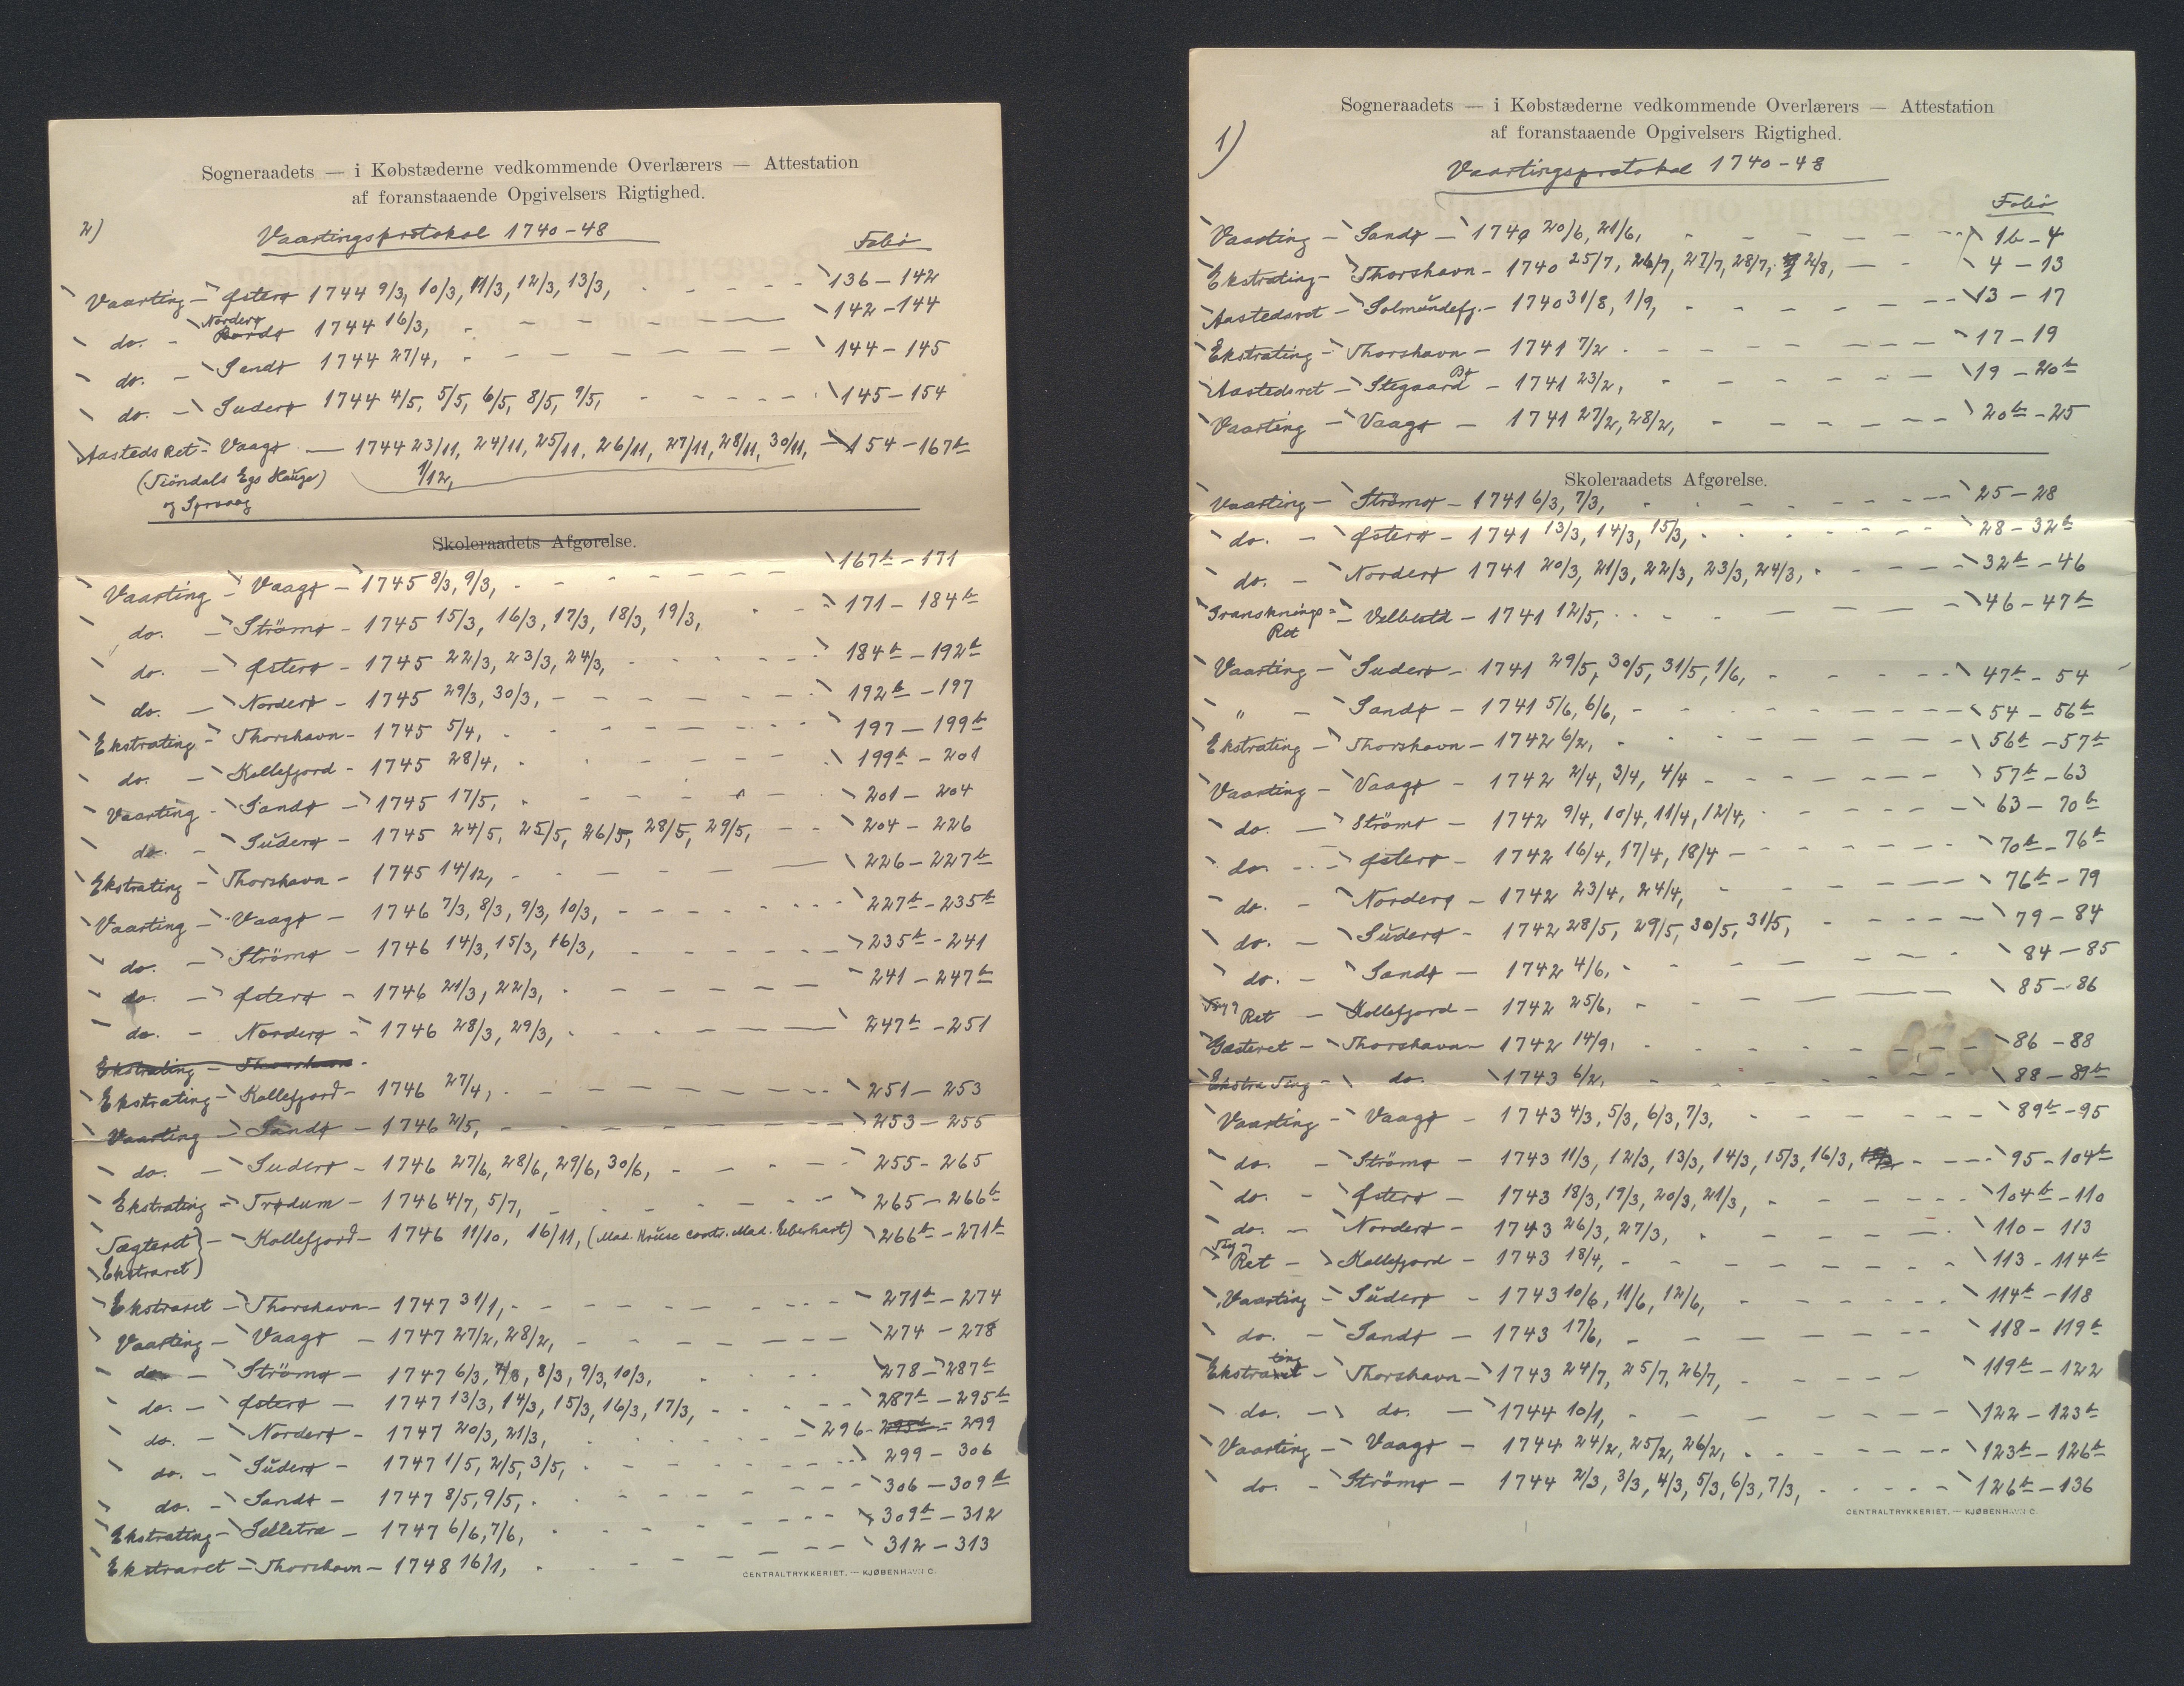 2)
Sogneraadets — i Købstæderne vedkommende Overlærers — Attestation
af foranstaaende Opgivelsers Rigtighed.
Vaartingsprotokol 1740-48
Folio
Vaarting - Østerø 1744 9/3, 10/3, 11/3, 12/3, 13/3, 136-142
do. - Norderø 1744 16/3, 142-144
do. - Sandø 1744 27/4, 144-145
do. - Suderø 1744 4/5, 5/5, 6/5, 8/5, 9/5, 145-154
Aasteds Ret - Vaagø — 1744 23/11, 24/11, 25/11, 26/11, 27/11, 28/11, 30/11, 154-167b
1/12,
og
Skoleraadets Afgørelse.
Vaarting - Vaagø - 1745 8/3, 9/3, 167b-171
do. - Strömø - 1745 15/3, 16/3, 17/3, 18/3, 19/3, 171-184b
do. - Østerø - 1745 22/3, 23/3, 24/3, 184b-192b
do. - Norderø - 1745 29/3, 30/3, 192b-197
Ekstrating - Thorshavn - 1745 5/4, 197-199b
do. - Kollefjord - 1745 28/4, 199b-201
Vaarting - Sandø - 1745 17/5, 201-204
do. - Sŭderø - 1745 24/5, 25/5, 26/5, 28/5, 29/5, 204-226
Ekstrating - Thorshavn - 1745 14/12, 226-227b
Vaarting - Vaagø - 1746 7/3, 8/3, 9/3, 10/3, 227b-235b
do. - Strömø - 1746 14/3, 15/3, 16/3, 235b-241
do. - Østerø - 1746 21/3, 22/3, 241-247b
do. - Norderø - 1746 28/3, 29/3, 247b-251
Ekstrating - Thorshavn -
Ekstrating - Kollefjord - 1746 27/4, 251-253
Vaarting - Sandø - 1746 2/5, 253-255
do. - Suderø - 1746 27/6, 28/6, 29/6, 30/6, 255-265
Ekstrating - Trødum - 1746 4/7, 5/7, 265-266b
Tægteret - Kollefjord - 1746 11/10, 16/11, (Mad. Krŭse contr. Mad. Eberhart) 266b-271b
Ekstraret
Ekstraret - Thorshavn - 1747 31/1, 271b-274
Vaarting - Vaagø - 1747 27/2, 28/2, 274-278
do. - Strömø - 1747 6/3, 7/3, 8/3, 9/3, 10/3, 278-287b
do. - Østerø - 1747 13/3, 14/3, 15/3, 16/3, 17/3, 287b-295b
do. - Norderø - 1747 20/3, 21/3, 296-299
do. - Sŭderø - 1747 1/5, 2/5, 3/5, 299-306
do. - Sandø - 1747 8/5, 9/5, 306-309b
Ekstrating - Selletræ - 1747 6/6, 7/6, 309b-312
Ekstraret - Thorshavn - 1748 16/1, 312-313
CENTRALTRYKKERIET. — KJØBENHAVN C.
1)
Sogneraadets — i Købstæderne vedkommende Overlærers — Attestation
af foranstaaende Opgivelsers Rigtighed.
Vaartingsprotokol 1740-48
Folio
Vaarting - Sandø - 1740 20/6, 21/6, 1b-4
Ekstrating - Thorshavn - 1740 25/7, 26/7, 27/7, 28/7, 2/8, 4-13
Aastedsret - Solmŭndefj. - 1740 31/8, 1/9, 13-17
Ekstrating - Thorshavn - 1741 7/2 17-19
Aastedsret - Stegaard Bø - 1741 23/2, 19-20b
Vaarting - Vaagø - 1741 27/2, 28/2, 20b-25
Skoleraadets Afgørelse.
Vaarting - Strömø - 1741 6/3, 7/3, 25-28
do. - Østerø - 1741 13/3, 14/3, 15/3, 28-32b
do. - Norderø 1741 20/3, 21/3, 22/3, 23/3, 24/3, 32b-46
Gransknings= - Velbestd - 1741 12/5, 46-47b
Ret
Vaarting - Suderø - 1741 29/5, 30/5, 31/5, 1/6, 47b-54
" - Sandø - 1741 5/6, 6/6, 54-56b
Ekstrating - Thorshavn - 1742 6/2, 56b-57b
Vaarting - Vaagø - 1742 2/4, 3/4, 4/4 57b-63
do. - Strömø - 1742 9/4, 10/4, 11/4, 12/4, 63-70b
do. - Østerø - 1742 16/4, 17/4, 18/4 70b-76b
do. - Norderø - 1742 23/4, 24/4, 76b-79
do. - Sŭderø - 1742 28/5, 29/5, 30/5, 31/5, 79-84
do. - Sandø - 1742 4/6, 84-85
Ret - Kollefjord - 1742 25/6, 85-86
Gæsteret - Thorshavn - 1742 14/9, 86-88
Ekstra Ting - do. 1743 6/2, 88-89b
Vaarting - Vaagø - 1743 4/3, 5/3, 6/3, 7/3, 89b-95
do. - Strömø - 1743 11/3, 12/3, 13/3, 14/3, 15/3, 16/3, 95-104b
do. - Østerø - 1743 18/3, 19/3, 20/3, 21/3, 104b-110
do. - Norderø - 1743 26/3, 27/3, 110-113
Ret - Kollefjord - 1743 18/4, 113-114b
Vaarting - Sŭderø - 1743 10/6, 11/6, 12/6, 114b-118
do. - Sandø - 1743 17/6, 118-119b
Ekstrating - Thorshavn - 1743 24/7, 25/7, 26/7, 119b-122
do. - do. - 1744 10/1, 122-123b
Vaarting - Vaagø - 1744 24/2, 25/2, 26/2, 123b-126b
do. - Strömø - 1744 2/3, 3/3, 4/3, 5/3, 6/3, 7/3, 126b-136
CENTRALTRYKKERIET. — KJØBENHAVN C.